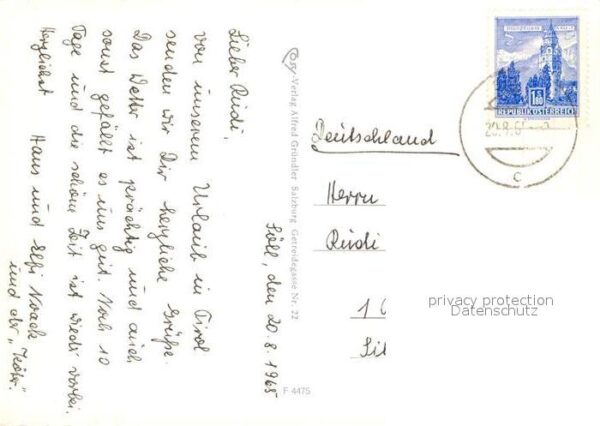 Lieber Rudi,
von unserem Urlaub in Tirol
senden wir Dir herzliche Grüße.
Das Wetter ist prächtig und auch
sonst gefällt es uns gut. Noch 10
Tage und die schöne Zeit ist wieder vorbei.
Herzlichst Hans und Elfi
und der
Söll, den 20.8.1965
Cosy-Verlag Alfred Gründler Salzburg Getreidegasse Nr. 22
F 4475
1.80
REPUBLIK ÖSTERREICH
20.8.6
c
Deutschland
Herrn
Rudi
1
privacy protection
Datenschutz